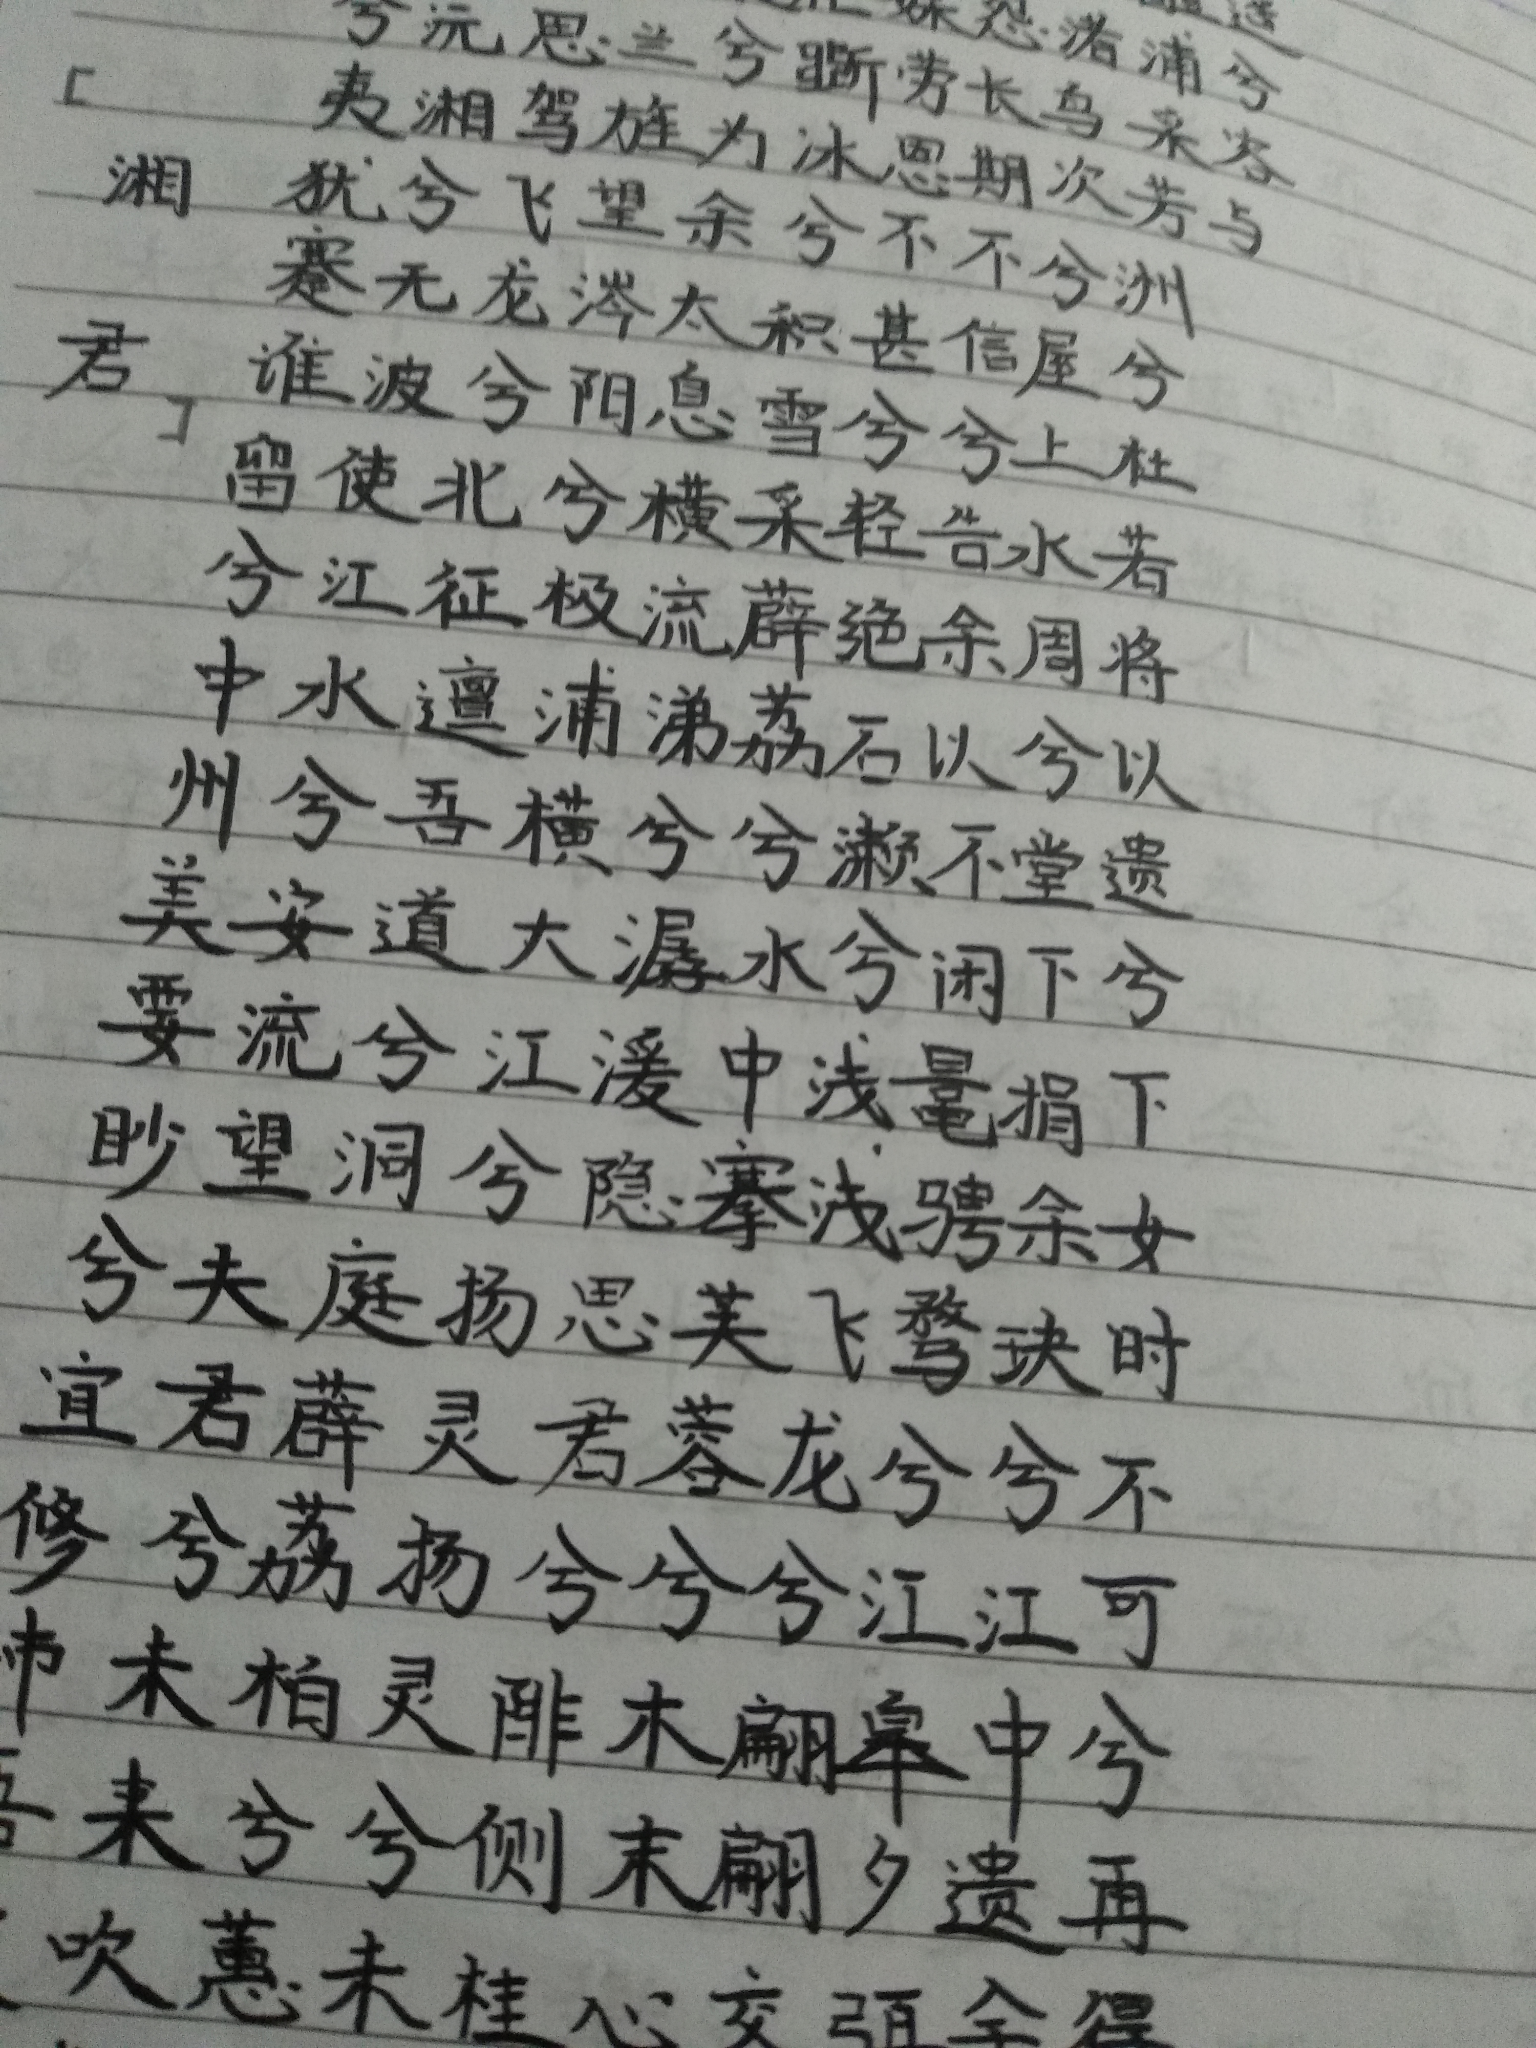 「湘君」
兮夷犹蹇谁留兮中州美要眇兮宜修沛吾
沅湘兮无波使江水兮安流望夫君兮未来吹
思驾飞龙兮北征邅吾道兮洞庭薜荔柏兮蕙
兰旌望涔阳兮极浦横大江兮扬灵扬灵兮未
兮为余太息横流涕兮潺湲隐思君兮陫侧桂
斵冰兮积雪采薜荔兮水中搴芙蓉兮木末心
媒劳恩不甚兮轻绝石濑兮浅浅飞龙兮翩翩交
怨长期不信兮告余以不闲鼂骋骛兮江皋夕弭
渚鸟次兮屋上水周兮堂下捐余玦兮江中遗余
浦采芳洲兮杜若将以遗兮下女时不可兮再得
兮容与